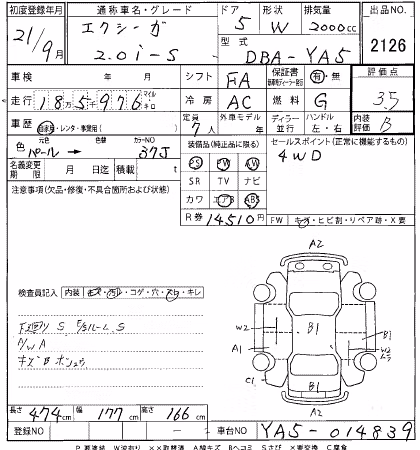 初度登録年月 通称車名・グレード ドア 形状 排気量 出品NO.
21/9月 エクシーガ 2.0i-S 5 W 2000cc 2126
型式 DBA-YA5
車検 年 月 シフト FA 保証書 有・無 評価点 3.5
走行 185976 マイル キロ 冷房 AC 燃料 G
車歴 自家用・レンタ・事業用( ) 定員 7人 外車モデル 年 ディーラー 並行 ハンドル 左・右 内装評価 B
色 元色 パール → 色替 カラーNO 37J
装備品(純正品に限る) セールスポイント(正常に機能するもの)
PS PW AW 4WD
名義変更期限 月 日迄 積載 t SR TV ナビ
注意事項(欠品・修復・不具合箇所および状態) カワ エアB ABS
R券 14510円 FW キズ・ヒビ割・リペア跡・X要
A2
検査員記入 内装 キズ・汚レ・コゲ・穴・スレ・キレ
W2 B1 B1
A1 W2
S ルーム S
A/W A
キズ B
C1 B1
A2
長さ 474cm 幅 177cm 高さ 166cm
登録NO 車台NO YA5-014839
P 要塗装 W波有り ××取替済 A線キズ Bヘコミ Sさび ×要交換 C腐食